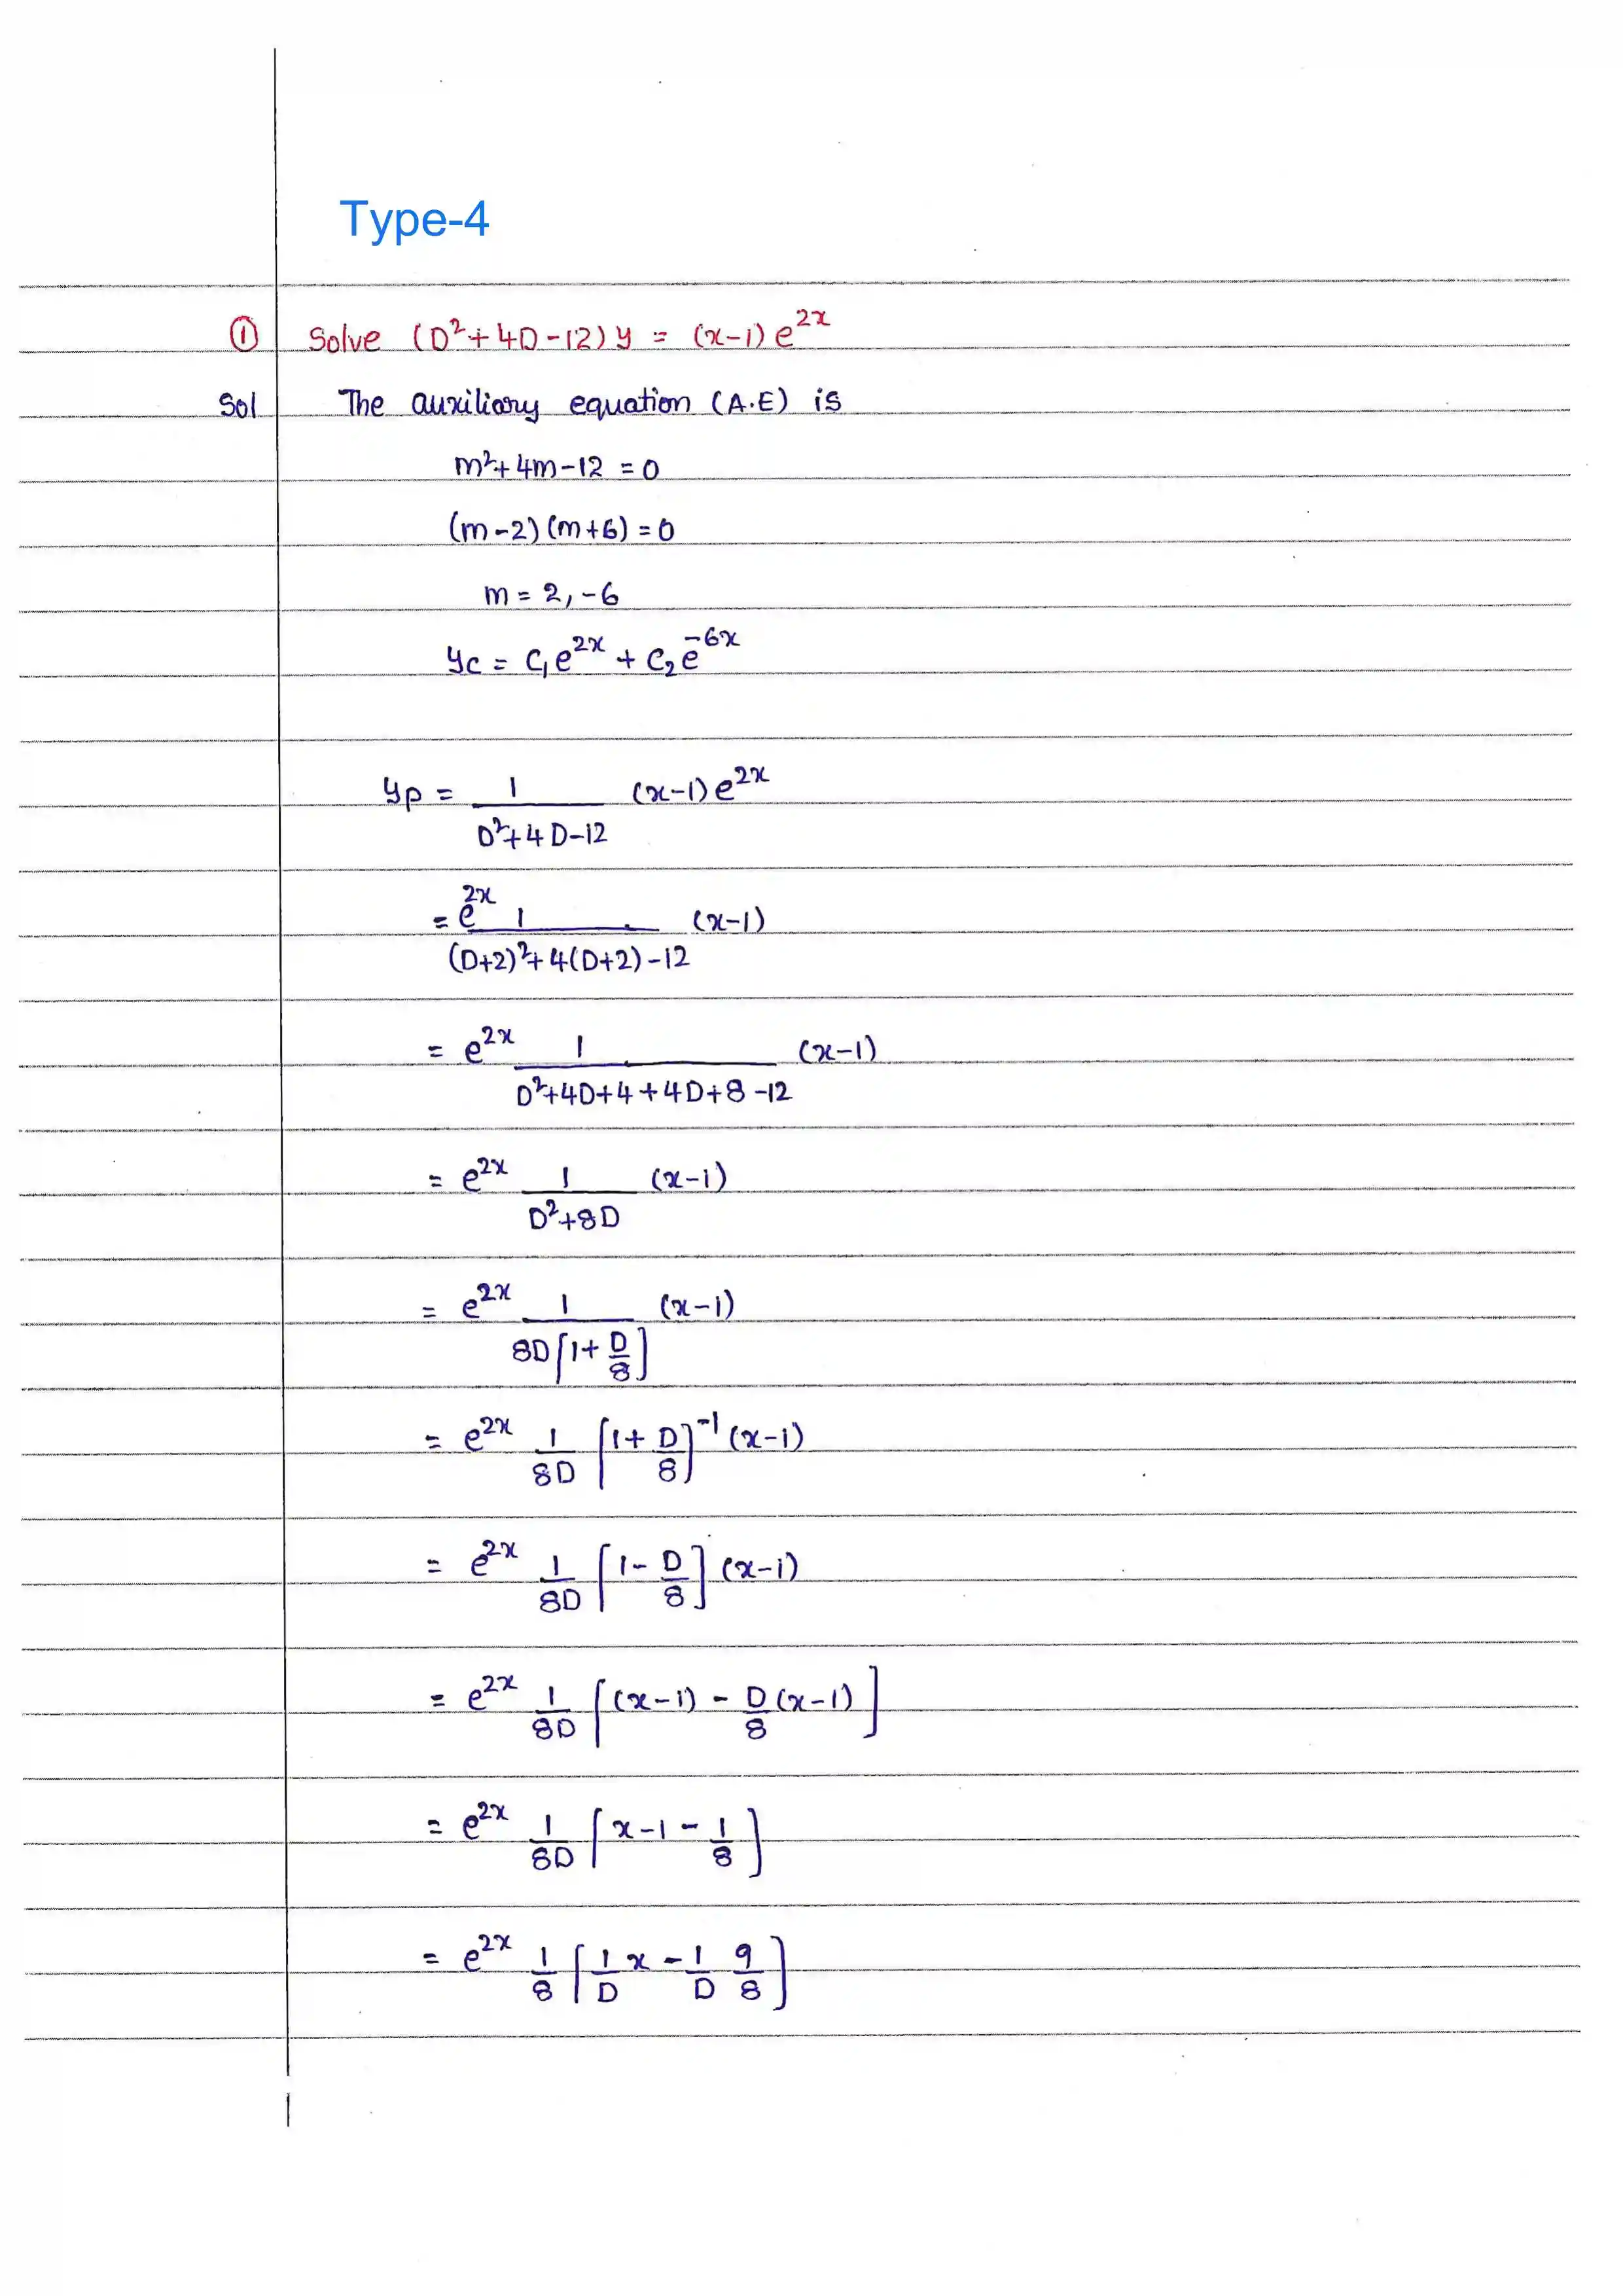 Type-4
① Solve (D²+4D-12)y = (x-1)e^{2x}
Sol The auxiliary equation (A.E) is
m²+4m-12 = 0
(m-2)(m+6) = 0
m = 2, -6
y_c = C₁e^{2x} + C₂e^{-6x}
y_p = \frac{1}{D²+4D-12} (x-1)e^{2x}
= e^{2x} \frac{1}{(D+2)²+4(D+2)-12} (x-1)
= e^{2x} \frac{1}{D²+4D+4+4D+8-12} (x-1)
= e^{2x} \frac{1}{D²+8D} (x-1)
= e^{2x} \frac{1}{8D[1+\frac{D}{8}]} (x-1)
= e^{2x} \frac{1}{8D} [1+\frac{D}{8}]^{-1} (x-1)
= e^{2x} \frac{1}{8D} [1-\frac{D}{8}] (x-1)
= e^{2x} \frac{1}{8D} [(x-1) - \frac{D}{8}(x-1)]
= e^{2x} \frac{1}{8D} [x-1-\frac{1}{8}]
= e^{2x} \frac{1}{8} [\frac{1}{D}x - \frac{1}{D} \frac{9}{8}]